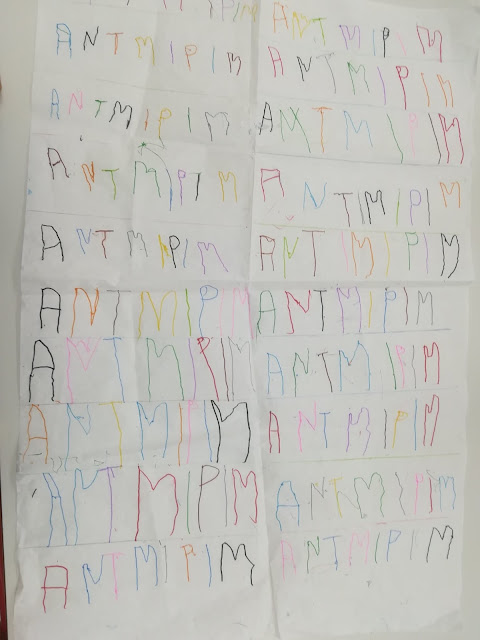 IPIM
ANTMIPIM
ANTMIPIM
ANTMIPIM
ANTMIPIM
ANTMIPIM
ANTMIPIM
ANTMIPIM
ANTMIPIM
ANTMIPIM
ANTMIPIM
ANTMIPIM
ANTMIPIM
ANTIMIPIM
ANTMIPIM
ANTMIPIM
ANTMIPIM
ANTMIPIM
ANTMIPIM
ANTMIPIM